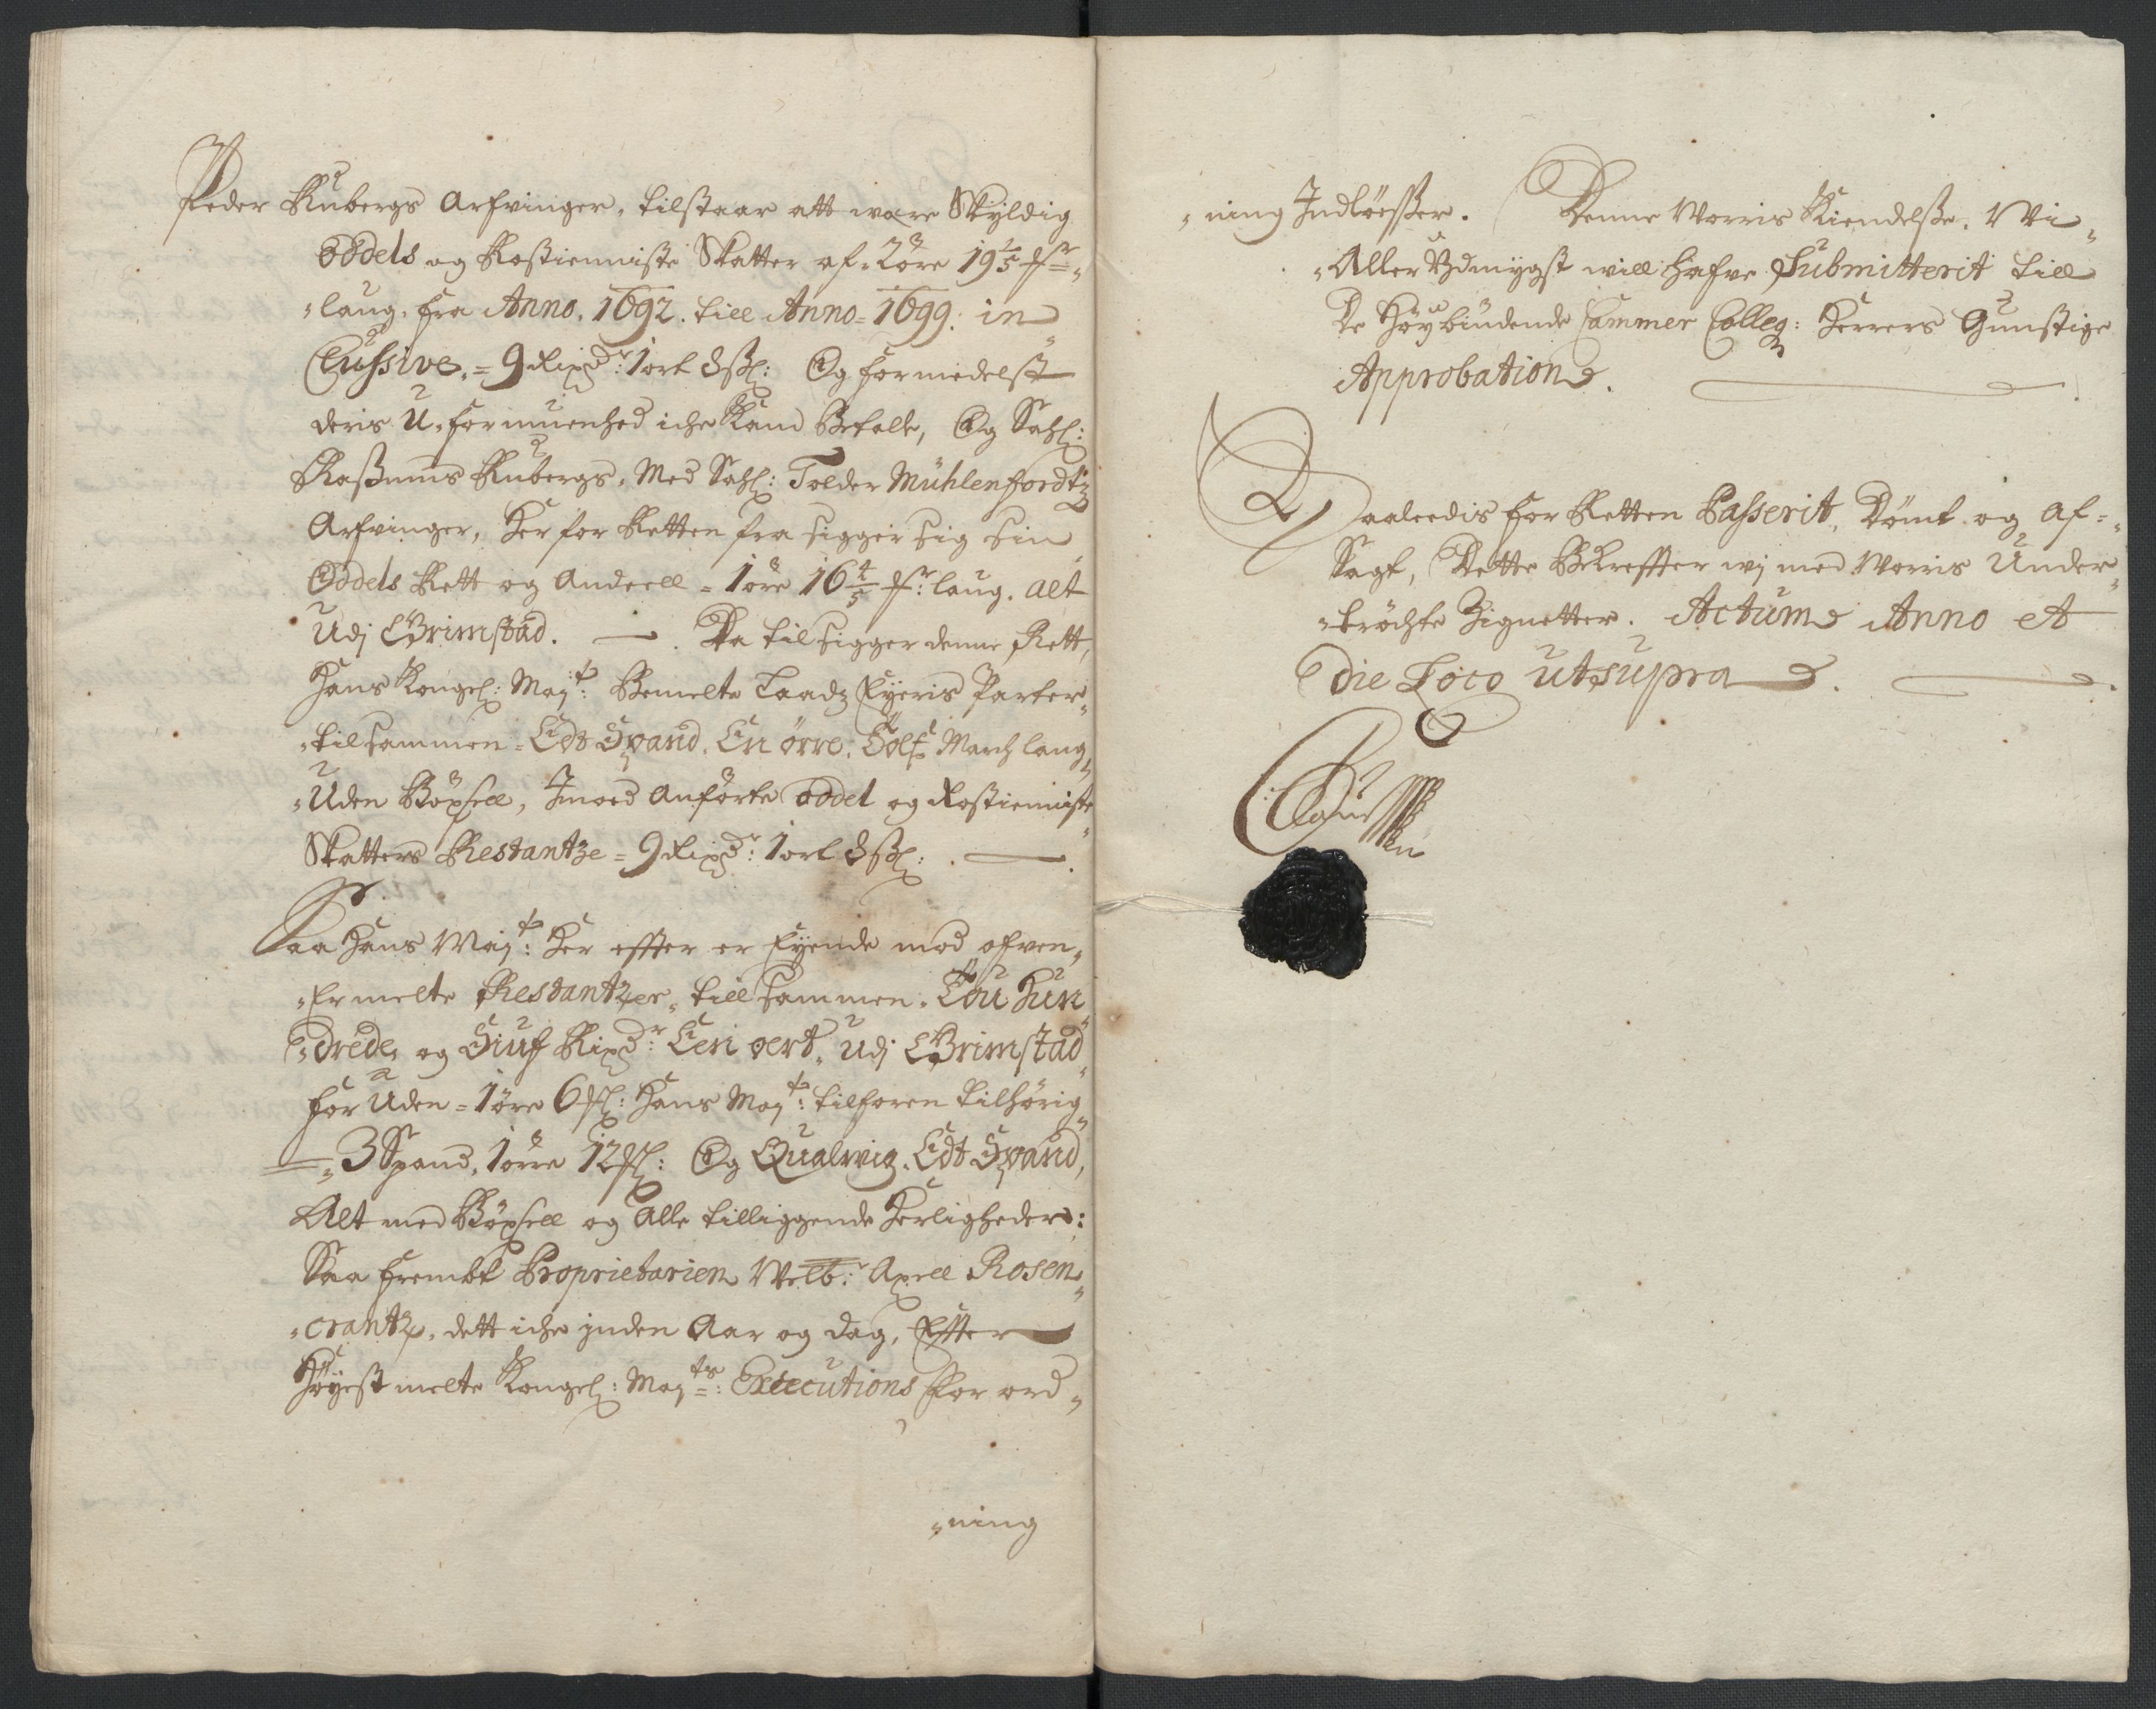 Peder Rubergs Arfvinger, tilstaar att were Skyldig
oddels og Rostieniste Skatter af 2 öre 19 1/5 ₰r
laug, fra Anno. 1692. till Anno 1699. in
Clussive. = 9 Rixdr: 1 ort 8 ß: Og formedelst
deris U-formuenhed iche Kand Betalle, Og Sahl:
Rasmus Rubergs, Med Sahl: Tolder Mühlenfordtz
Arfvinger, Her for Retten fra sigger sig sin
Oddels Rett og Andeell = 1 öre 16 4/5 ₰r: laug. alt
Udj Grimstad. — . Da tilsigger denne Rett,
Hans Kongel: Maytt: Bemelte Laadz Eyeris Parter
tilsammen = Edt Spand. En örre. Tolf March laug
Uden Böxsell, Imod Anförte oddel og Rostieniste
Skatters Restantze = 9 Rixdr: 1 ort 8 ß: — .
Saa Hans Maytt: Her effter er Eyende mod ofven
Ermelte Restantzer, till sammen. Tou Hun
drede, og Siuf Rixdr: Een oert, Udj Grimstad
for Uden = 1 öre 6 ₰l: Hans Maytt: tilforen tilhörig
= 3 Spand, 1 örre 12 ₰l: Og Qualwig. Edt Spand,
Alt med Böxsell og Alle tilliggende Herligheder:
Saa fremkt Proprietarien Welb:r Axell Rosen
crantz, dett iche inden Aar og dag, Effter
Höyest melte Kongel: Mayts: Executions For ord
ning
ning Indlöeßer. Denne Worris Kiendelße. Wi
Aller Ydmygst will hafve Submitterit till
De Höybiudende Cammer Colleg: Herrers Gunstige
Approbation.
Saaleedis for Retten Passerit, Dömt og af=
Sagt, Dette Bekreffter wj med Worris Under
tröchte Zignetter. Actum Anno et
die Loco utsupra.